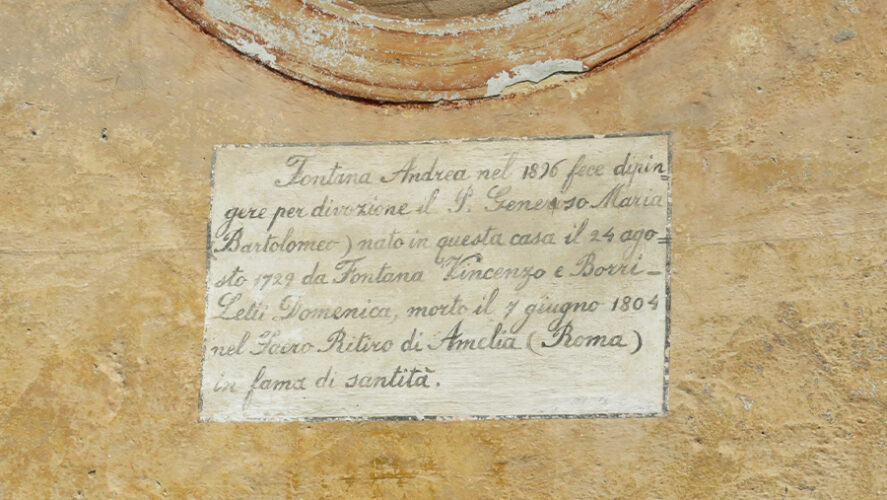 Fontana Andrea nel 1896 fece dipin=
gere per divozione il P. Generoso Maria
(Bartolomeo) nato in questa casa il 24 ago=
sto 1729 da Fontana Vincenzo e Borri-
Letii Domenica, morto il 7 giugno 1804
nel Sacro Ritiro di Amelia (Roma)
in fama di santità.